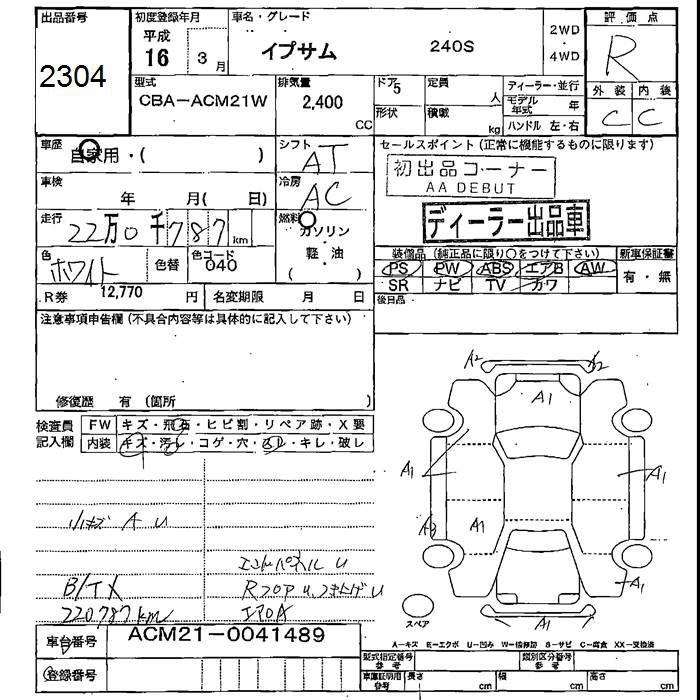 出品番号
2304
初度登録年月
平成
16 3月
車名・グレード
イプサム 240S
2WD
・
4WD
評価点
R
外装 内装
C C
型式
CBA-ACM21W
排気量
2,400
CC
ドア 5
形状
定員
人
積載
kg
ディーラー・並行
モデル年式 年
ハンドル 左・右
車歴
自家用・( )
シフト
AT
車検
年 月( 日)
冷房
AC
走行
22万0千787km
燃料
ガソリン
・
軽・油
( )
色
ホワイト
色替
色コード
040
R券 12,770 円
名変期限 月 日
セールスポイント(正常に機能するものに限ります)
初出品コーナー
AA DEBUT
ディーラー出品車
装備品(純正品に限り○をつけて下さい)
PS PW ABS エアB AW
SR ナビ TV カワ
新車保証書
有・無
後日品
注意事項申告欄(不具合内容等は具体的に記入して下さい)
修復歴 有(箇所
検査員
記入欄
FW キズ・飛石・ヒビ割・リペア跡・X要
内装 キズ・汚レ・コゲ・穴・スレ・キレ・破レ
小キズ A U
エンドパネルU
B/TX
220,787km
RフロアU、つき上げU
エアロA
A2 A2
A1
A1 A1
A1
A1
A1
スペア
A-キズ E-エクボ U-凹み W-板修跡 S-サビ C-腐食 XX-交換済
車台番号
ACM21-0041489
登録番号
型式指定番号
参考
類別区分番号
参考
車庫証明用
参考
長さ cm
幅 cm
高さ cm